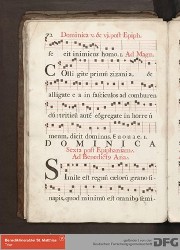 72. Dominica v. & vj. post Epiph.
fecit inimicus homo. Ad Mag.
Colligite primũ zizania, &
alligate ea in fasciculos ad comburen
dũ triticũ autẽ cõgregate in horreũ
meum, dicit dominus. E u o u a e.
DOMINICA
Sexta post Epiphaniam.
Ad Benedictus Ana.
Simile est regnũ cælorũ grano si-
napis, quod minimũ est omnibus semi-
DFG